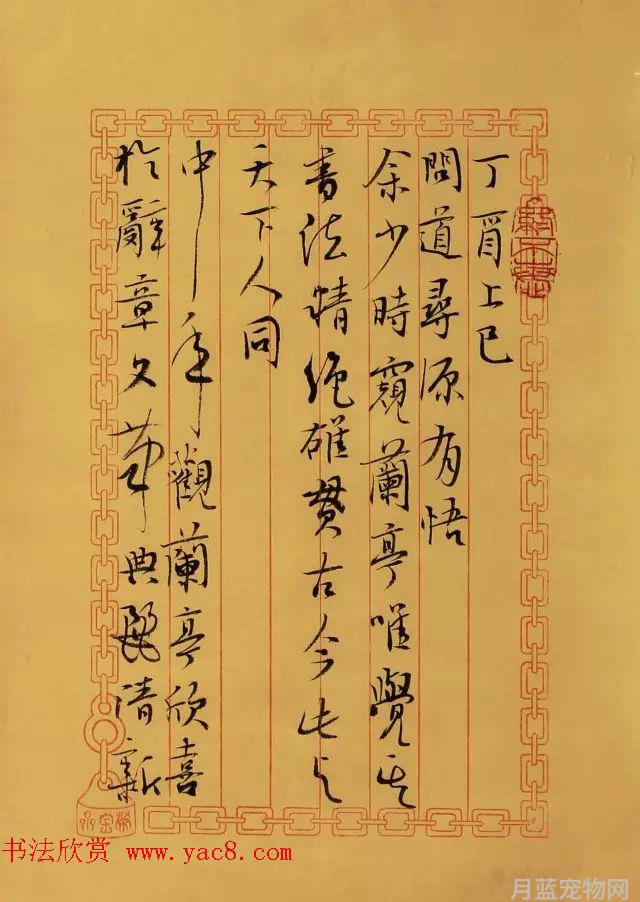 丁酉上巳
問道尋源有悟
余少時窺蘭亭唯覺其
書法精絕雄貫古今此與
天下人同
中年觀蘭亭欣喜
於辭章文筆典麗清新
书法欣赏 www.yac8.com
月蓝宠物网